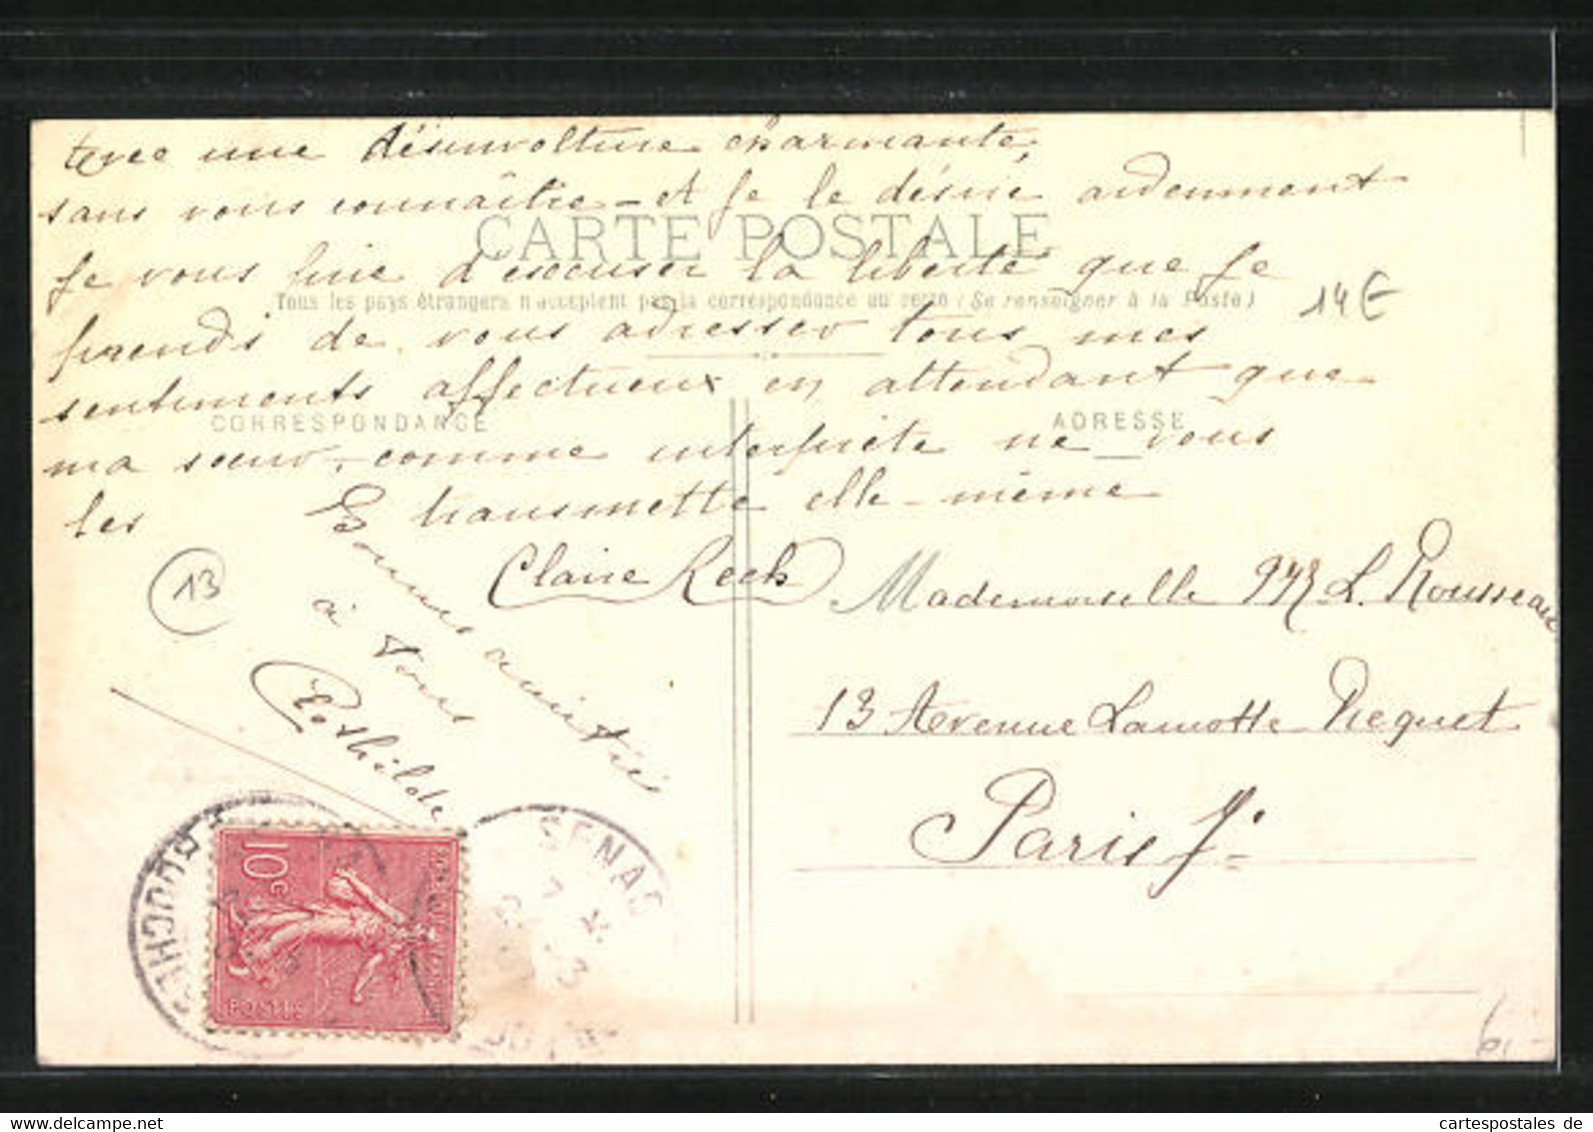 avec une désinvolture charmante,
sans vous connaître - et je le désire ardemment
CARTE POSTALE
Je vous prie d'excuser la liberté que je
Tous les pays étrangers n'acceptent pas la correspondance au verso (Se renseigner à la Poste)
14€
prends de vous adresser tous mes
sentiments affectueux en attendant que
CORRESPONDANCE
ADRESSE
ma sœur, comme interprète ne vous
les transmette elle-même
Claire Rech
Bonne amitié
à tous
Clothilde
13
Mademoiselle L. Rousseau
13 Avenue Lamotte Piequet
Paris
10c
POSTES
SENAS
BOUCHES
cartespostales de